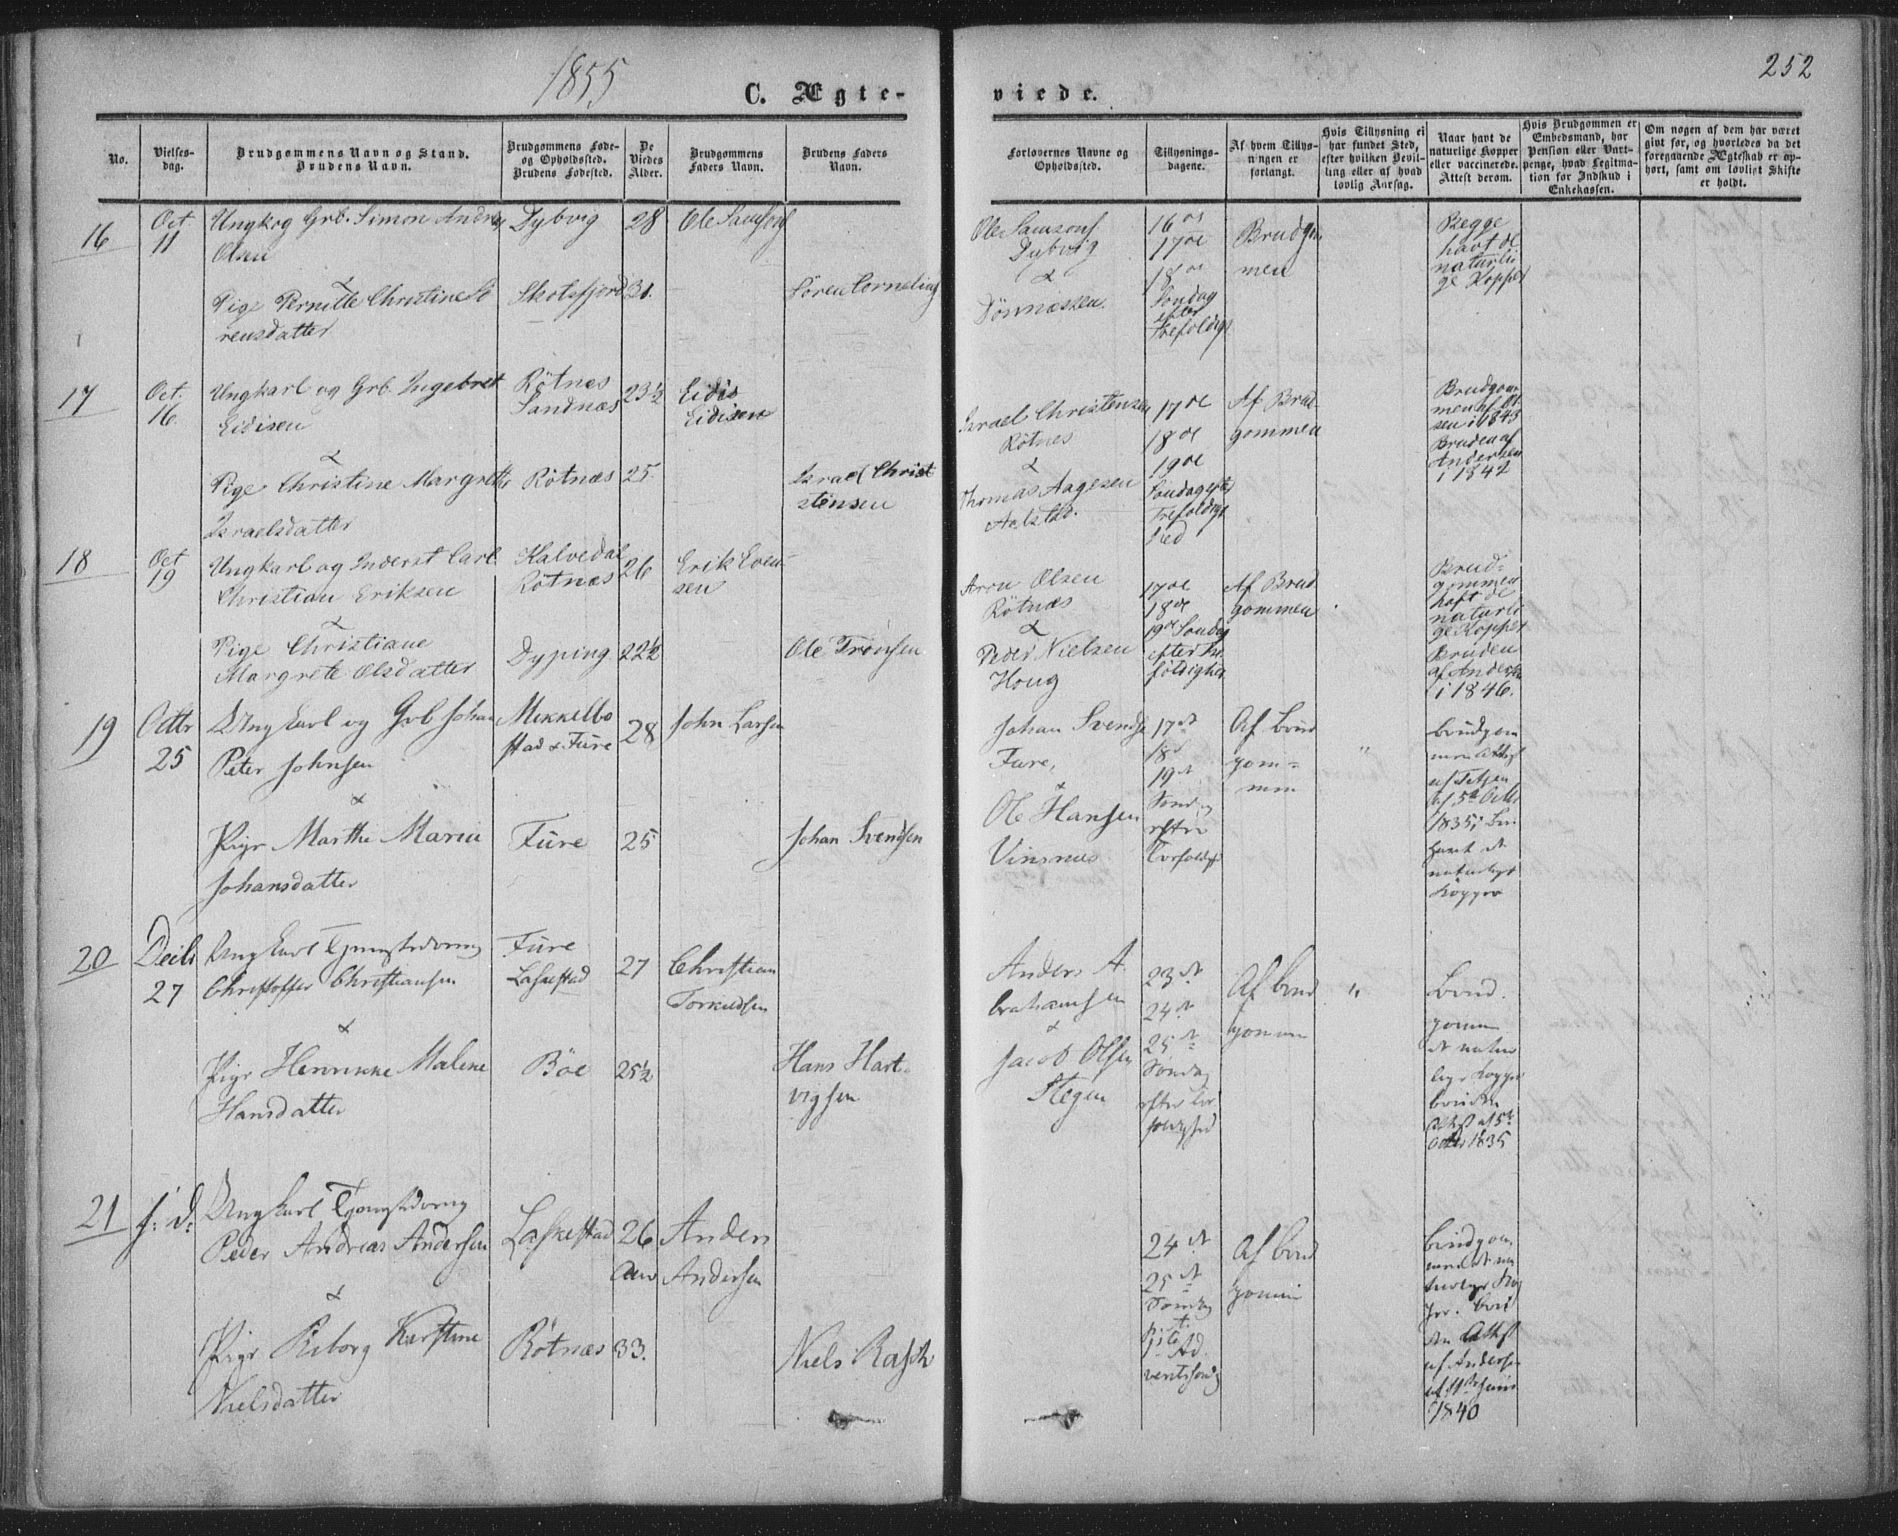 1855
252
C. Ægte-
viede.
No.
Vielses-
dag.
Brudgommens Navn og Stand.
Brudens Navn.
Brudgommens Føde-
og Opholdssted.
Brudens Fødested.
De
Viedes
Alder.
Brudgommens
Faders Navn.
Brudens Faders
Navn.
Forlovernes Navne og
Opholdssted.
Tillysnings-
dagene.
Af hvem Tillys-
ningen er
forlangt.
Hvis Tillysning ei
har fundet Sted,
efter hvilken Bevil-
ling eller af hvad
lovlig Aarsag.
Naar havt de
naturlige Kopper
eller vaccinerede.
Attest derom.
Hvis Brudgommen er
Embedsmand, har
Pension eller Vart-
penge, hvad Legitma-
tion for Indskud i
Enkekassen.
Om nogen af dem har været
gift før, og hvorledes da det
foregaaende Ægteskab er op-
hørt, samt om lovligt Skifte
er holdt.
16
Oct
11
Ungk og Grb. Simon Andreas
Olsen
&
Pige Pernille Christine Sö
rensdatter
Dybvig
Skotsfjord
28
31.
Ole Samsons
Sören Cornelius
Ole Samsons
Dybvig
&
Dönnæszen.
16de
17de
18de
Söndag
efter
Trefoldigh
Brudgom
men
Begge
havt de
naturli
ge Kopper
17
Oct.
16
Ungkarl og Grb. Ingebret
Eidisen
&
Pige Christine Margrethe
Israelsdatter
Rötnæs
Sandnæs
Rötnæs
23½
25
Eidis
Eidisen
Israel Christ
stensen
Israel Christensen
Rötnes
&
Thomas Aagesen
17de
18de
19de
Söndag efter
Trefoldigh
hed
Af Brud-
gommen
Brudgom
men af Ol-
sen i 1843
Bruden af
Andersen
i 1842
18
Oct
19
Ungkarl og Inderst Carl
Christian Eriksen
&
Pige Christiane
Margrete Olsdatter
Kalvedal
Rötnæs
Dyping
26
22½
Erik Even-
sen
Ole Tronsen
Aron Olsen
Rötnæs
&
Peder Nielsen
Houg
17de
18de
19de Söndag
efter Tre
foldighed
Af Brud
gommen
Brud-
gommen
haft de
naturli
ge Kopper
Bruden
af Andersen
i 1846.
19
Octbr
25
Ungkarl og Grb Johan
Peter Johnsen
&
Pige Marthe Maria
Johansdatter
Mikkelbo
stad & Fure
Fure
28
25
John Larsen
Johan Svendsen
Johan Svendsen
Fure,
&
Ole Hansen
Vinsnæs
17de
18de
19de
Sönd
efter
Trefoldigh
Af Brud
gom-
men
"
Brudgom
men Attest
af 5te Octbr
1835;
havt de
naturlige
Kopper
20
Decb
27
Ungkarl Tjenestdreng
Christoffer Christiansen
&
Pige Henrikke Malene
Hansdatter
Fure
Laskestad
Böe
27
25½
Christian
Torkildsen
Hans Hart-
vigsen
Anders A-
brahamsen
&
Jacob Olsen
Stegen
23de
24de
25de
Söndag
efter Tre
foldighed
Af Brud
gommen
"
Brud.
gommen
de natur
lige Kopper
bruden
Attest af 5te
Octbr 1835
21
s: d:
Ungkarl Tjenestdreng
Peder Andreas Andersen
&
Pige Riborg Karstine
Nielsdatter
Laskestad
Rötnæs
26
Aar
33.
Anders
Andersen
Niels Rasch
24de
25de
Söndag
&
1ste Ad
ventsönd
Af Brud
gommen
Brudgom
men de na
turlige Kop
per. Brud
en Attest
af Andersen
af 11te Juni
1840